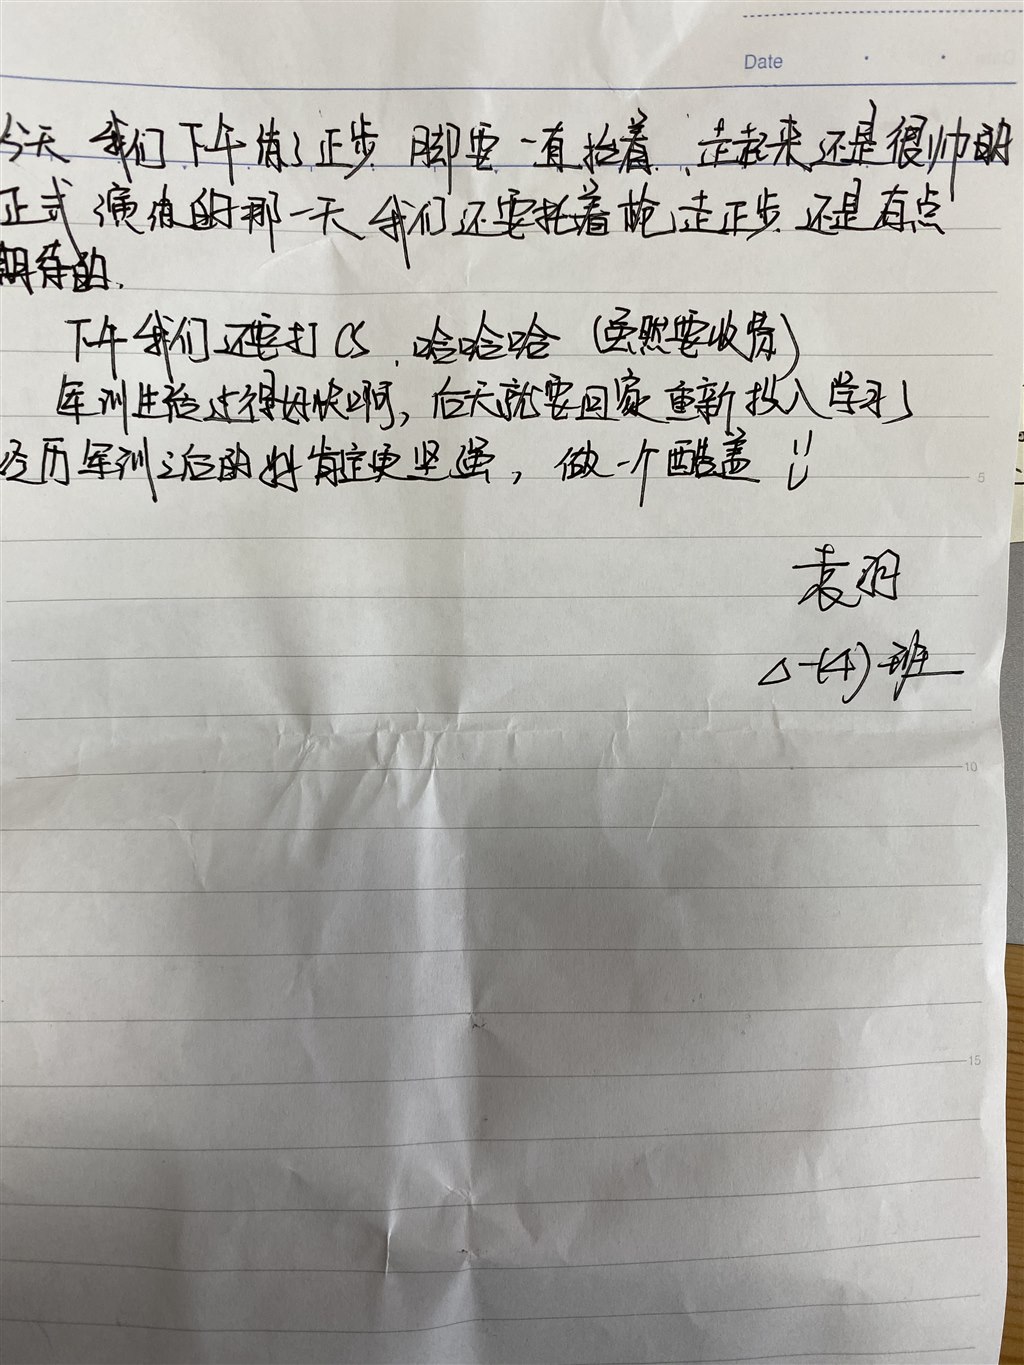 Date
今天 我们下午练了正步 脚要一直抬着 、走起来还是很帅的
正式演练的那一天 我们还要托着枪走正步 还是有点
期待的.
下午我们还要打CS、哈哈哈 (虽然要收费)
军训生活过得好快啊, 后天就要回家重新投入学习了
经历军训之后的 肯定更坚强, 做一个酷盖
5
袁羽
(4)班
10
15